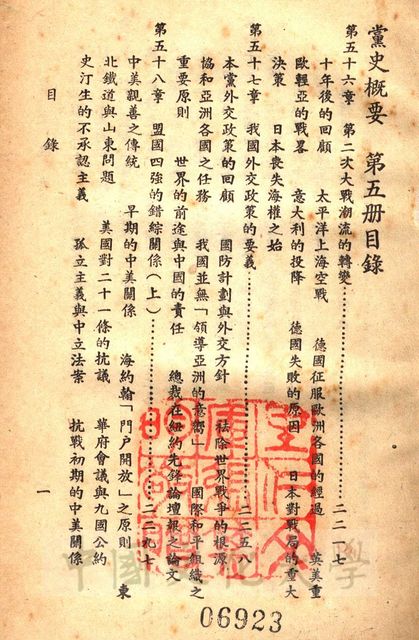 黨史概要 第五册目錄
第五十六章 第二次大戰潮流的轉變⋯⋯⋯⋯二二一七
十年後的回顧 太平洋上海空戰 德國征服歐洲各國的經過 英美重
歐輕亞的戰畧 意大利的投降 德國失敗的原因 日本對戰局的重大
決策 日本喪失海權之始
第五十七章 我國外交政策的要義⋯⋯⋯⋯二二五八
本黨外交政策的回顧 國防計劃與外交方針 祛除世界戰爭的根源
協和亞洲各國之任務 我國並無「領導亞洲的意嚮」 國際和平組織之
重要原則 世界的前途與中國的責任 總裁在紐約先鋒論壇報之論文
第五十八章 盟國四強的錯綜關係(上)⋯⋯⋯⋯二二九七
中美親善之傳統 早期的中美關係 海約翰「門戶開放」之原則 東
北鐵道與山東問題 美國對二十一條的抗議 華府會議與九國公約
史汀生的不承認主義 孤立主義與中立法案 抗戰初期的中美關係
目錄 一
06923